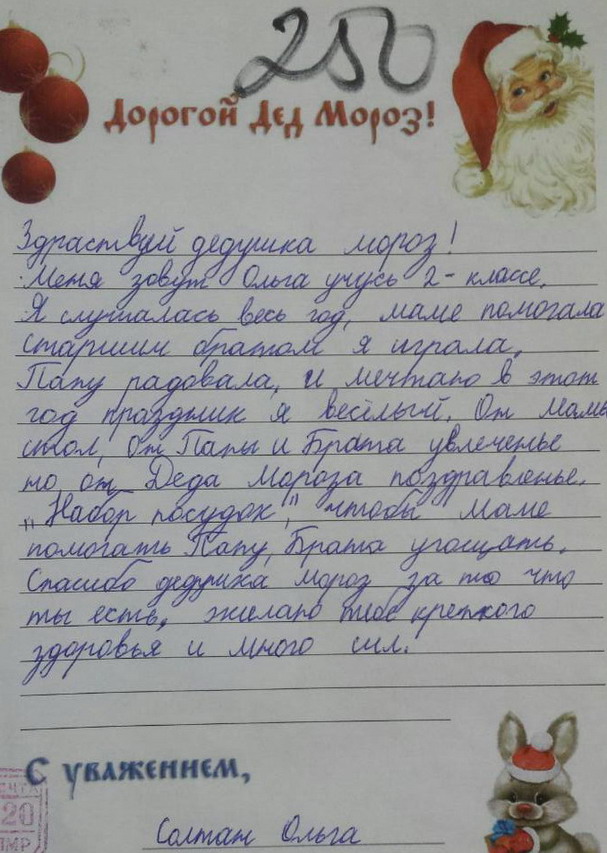 250
Дорогой Дед Мороз!
Здраствуй дедушка мороз!
Меня зовут Ольга учусь 2-классе.
Я слушалась весь год, маме помогала
старшим братом я играла.
Папу радовала, и мечтаю в этот
год праздник я весёлый. От мамы
стол, от Папы и Брата увлеченье
но от Деда Мороза поздравленье.
„Набор посудок," чтобы маме
помогать Папу, Брата угощать.
Спасибо дедушка мороз за то что
ты есть, жилаю тебе крепкого
здоровья и много сил.
С уважением,
20
ПМР
Солтан Ольга